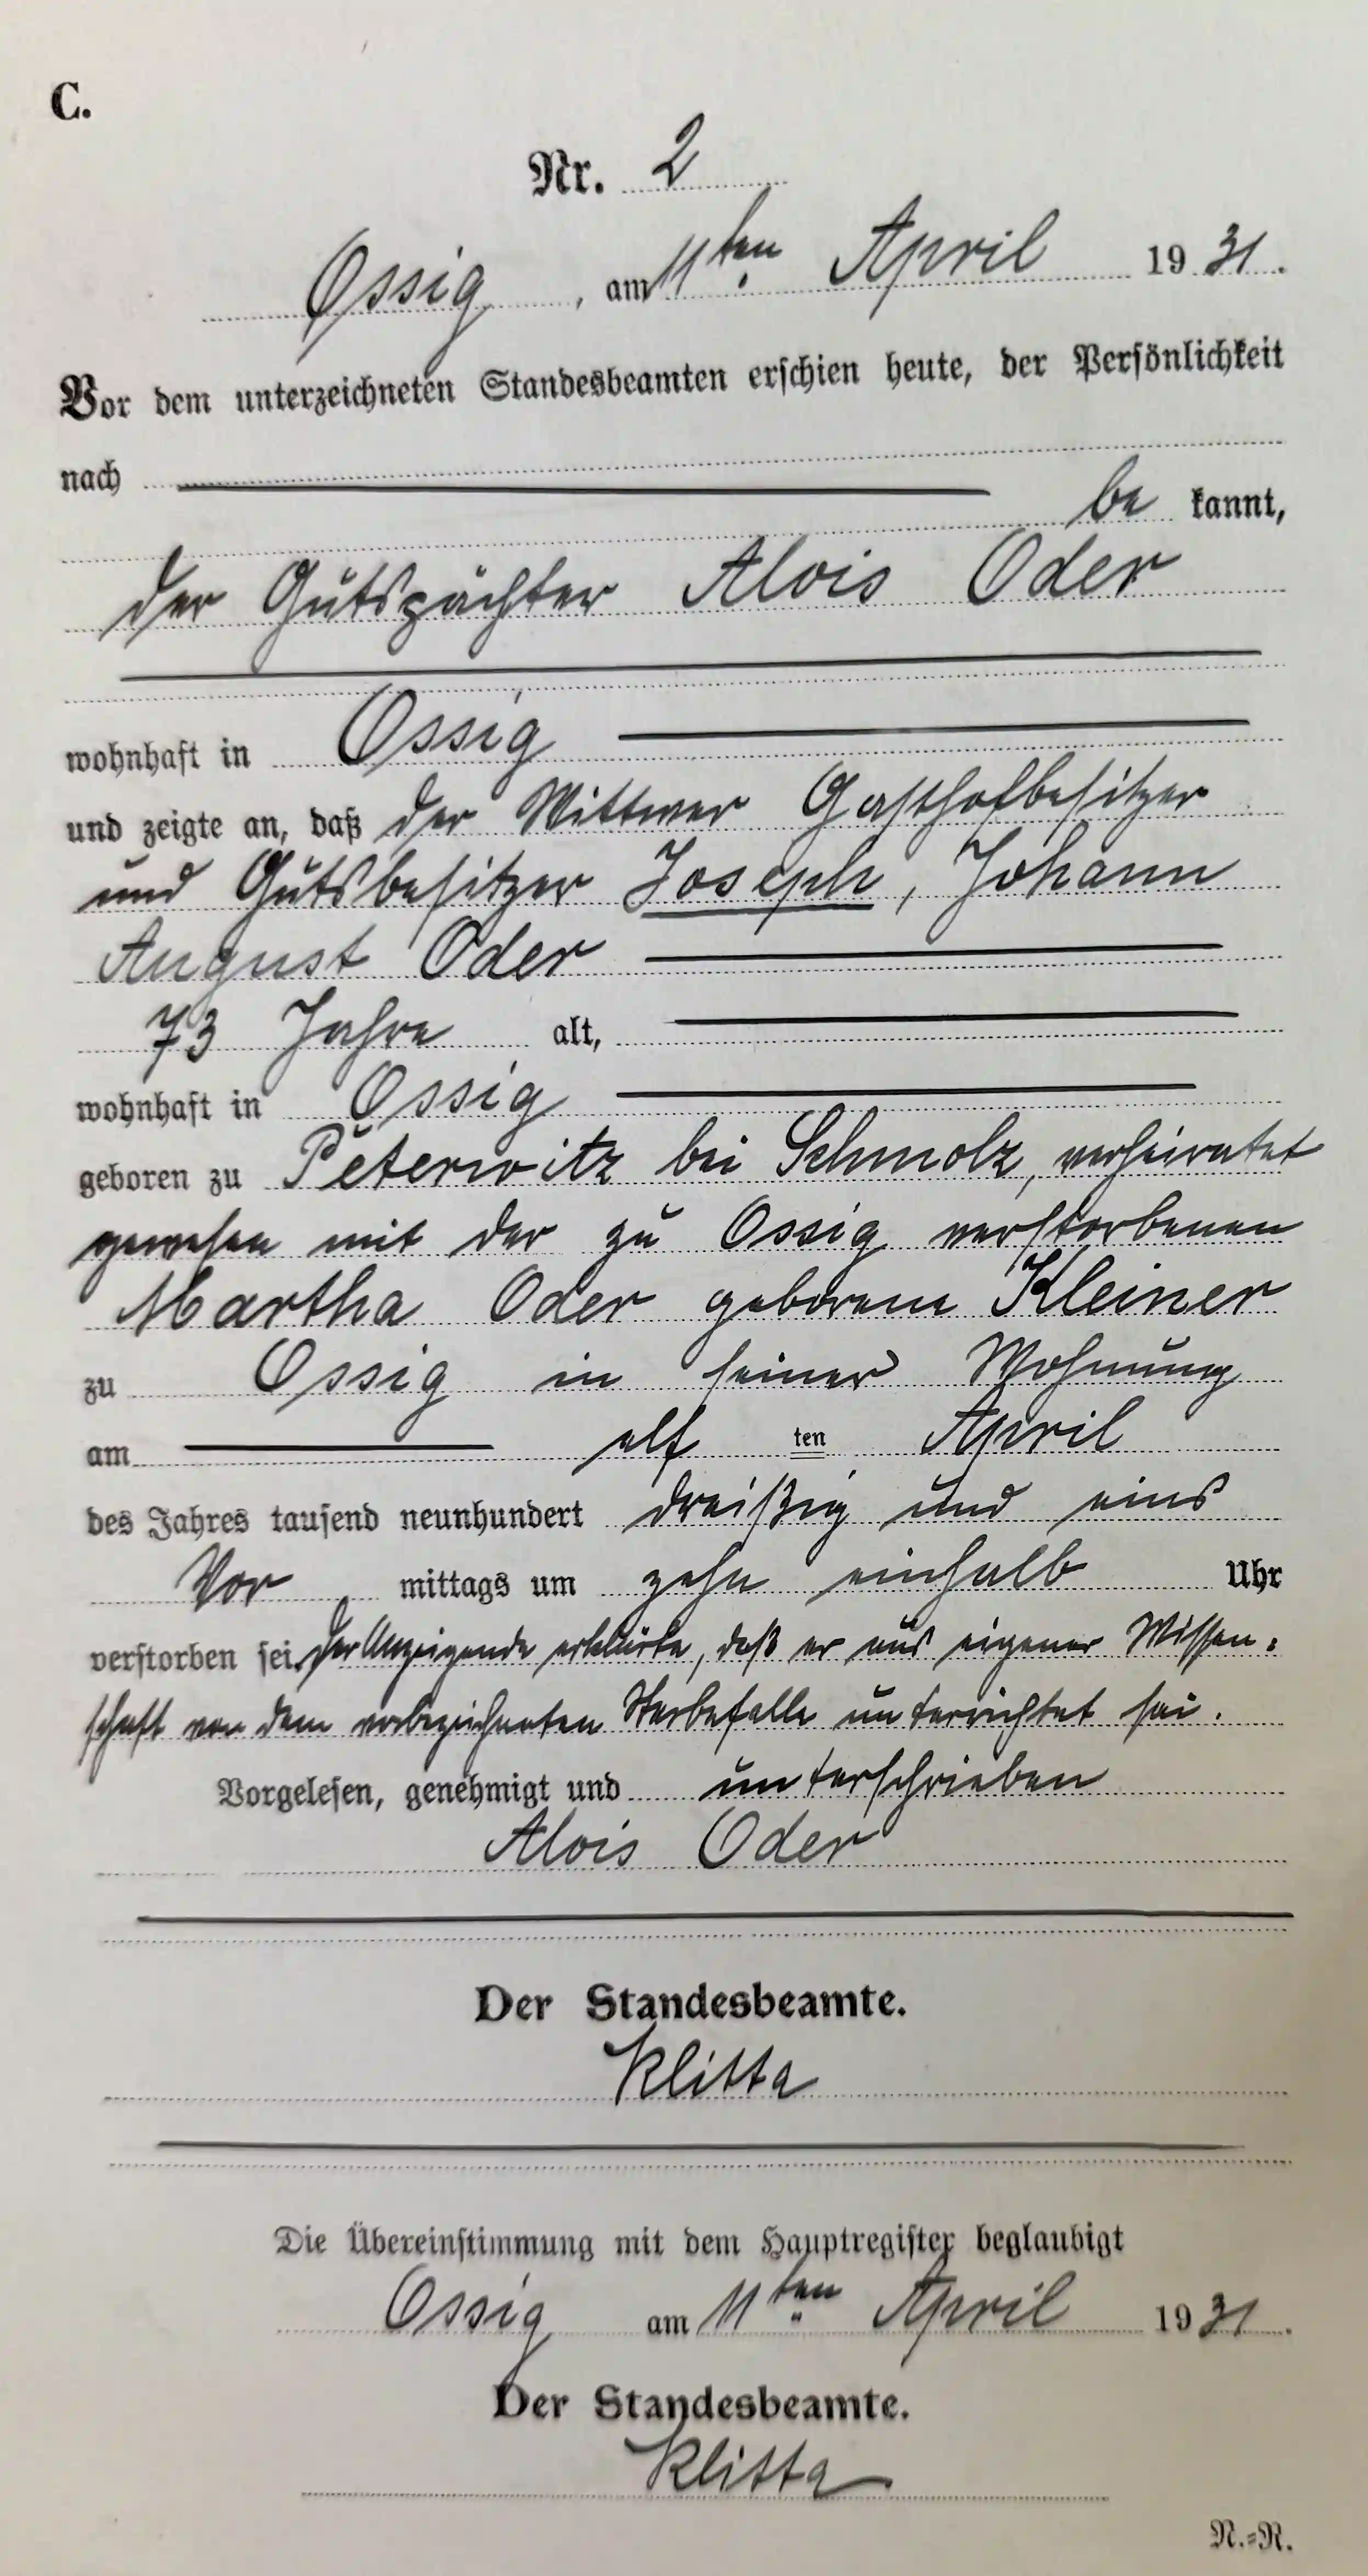 C.
Nr. 2
Ossig, am 11ten April 1931.
Vor dem unterzeichneten Standesbeamten erschien heute, der Persönlichkeit
nach
be kannt,
der Gutspächter Alois Oder
wohnhaft in Ossig
und zeigte an, daß der Wittwer Gasthofbesitzer
und Gutsbesitzer Joseph, Johann
August Oder
73 Jahre alt,
wohnhaft in Ossig
geboren zu Peterwitz bei Schmolz, verheiratet
gewesen mit der zu Ossig verstorbenen
Martha Oder geborene Kleiner
zu Ossig in seiner Wohnung
am elf ten April
des Jahres tausend neunhundert dreißig und eins
Vor mittags um zehn einhalb Uhr
verstorben sei. Der Anzeigende erklärte, daß er aus eigener Wissen-
schaft von dem vorbezeichneten Sterbefalle unterrichtet sei.
Vorgelesen, genehmigt und unterschrieben
Alois Oder
Der Standesbeamte.
Klitta
Die Übereinstimmung mit dem Hauptregister beglaubigt
Ossig am 11ten April 1931.
Der Standesbeamte.
Klitta
N.=R.